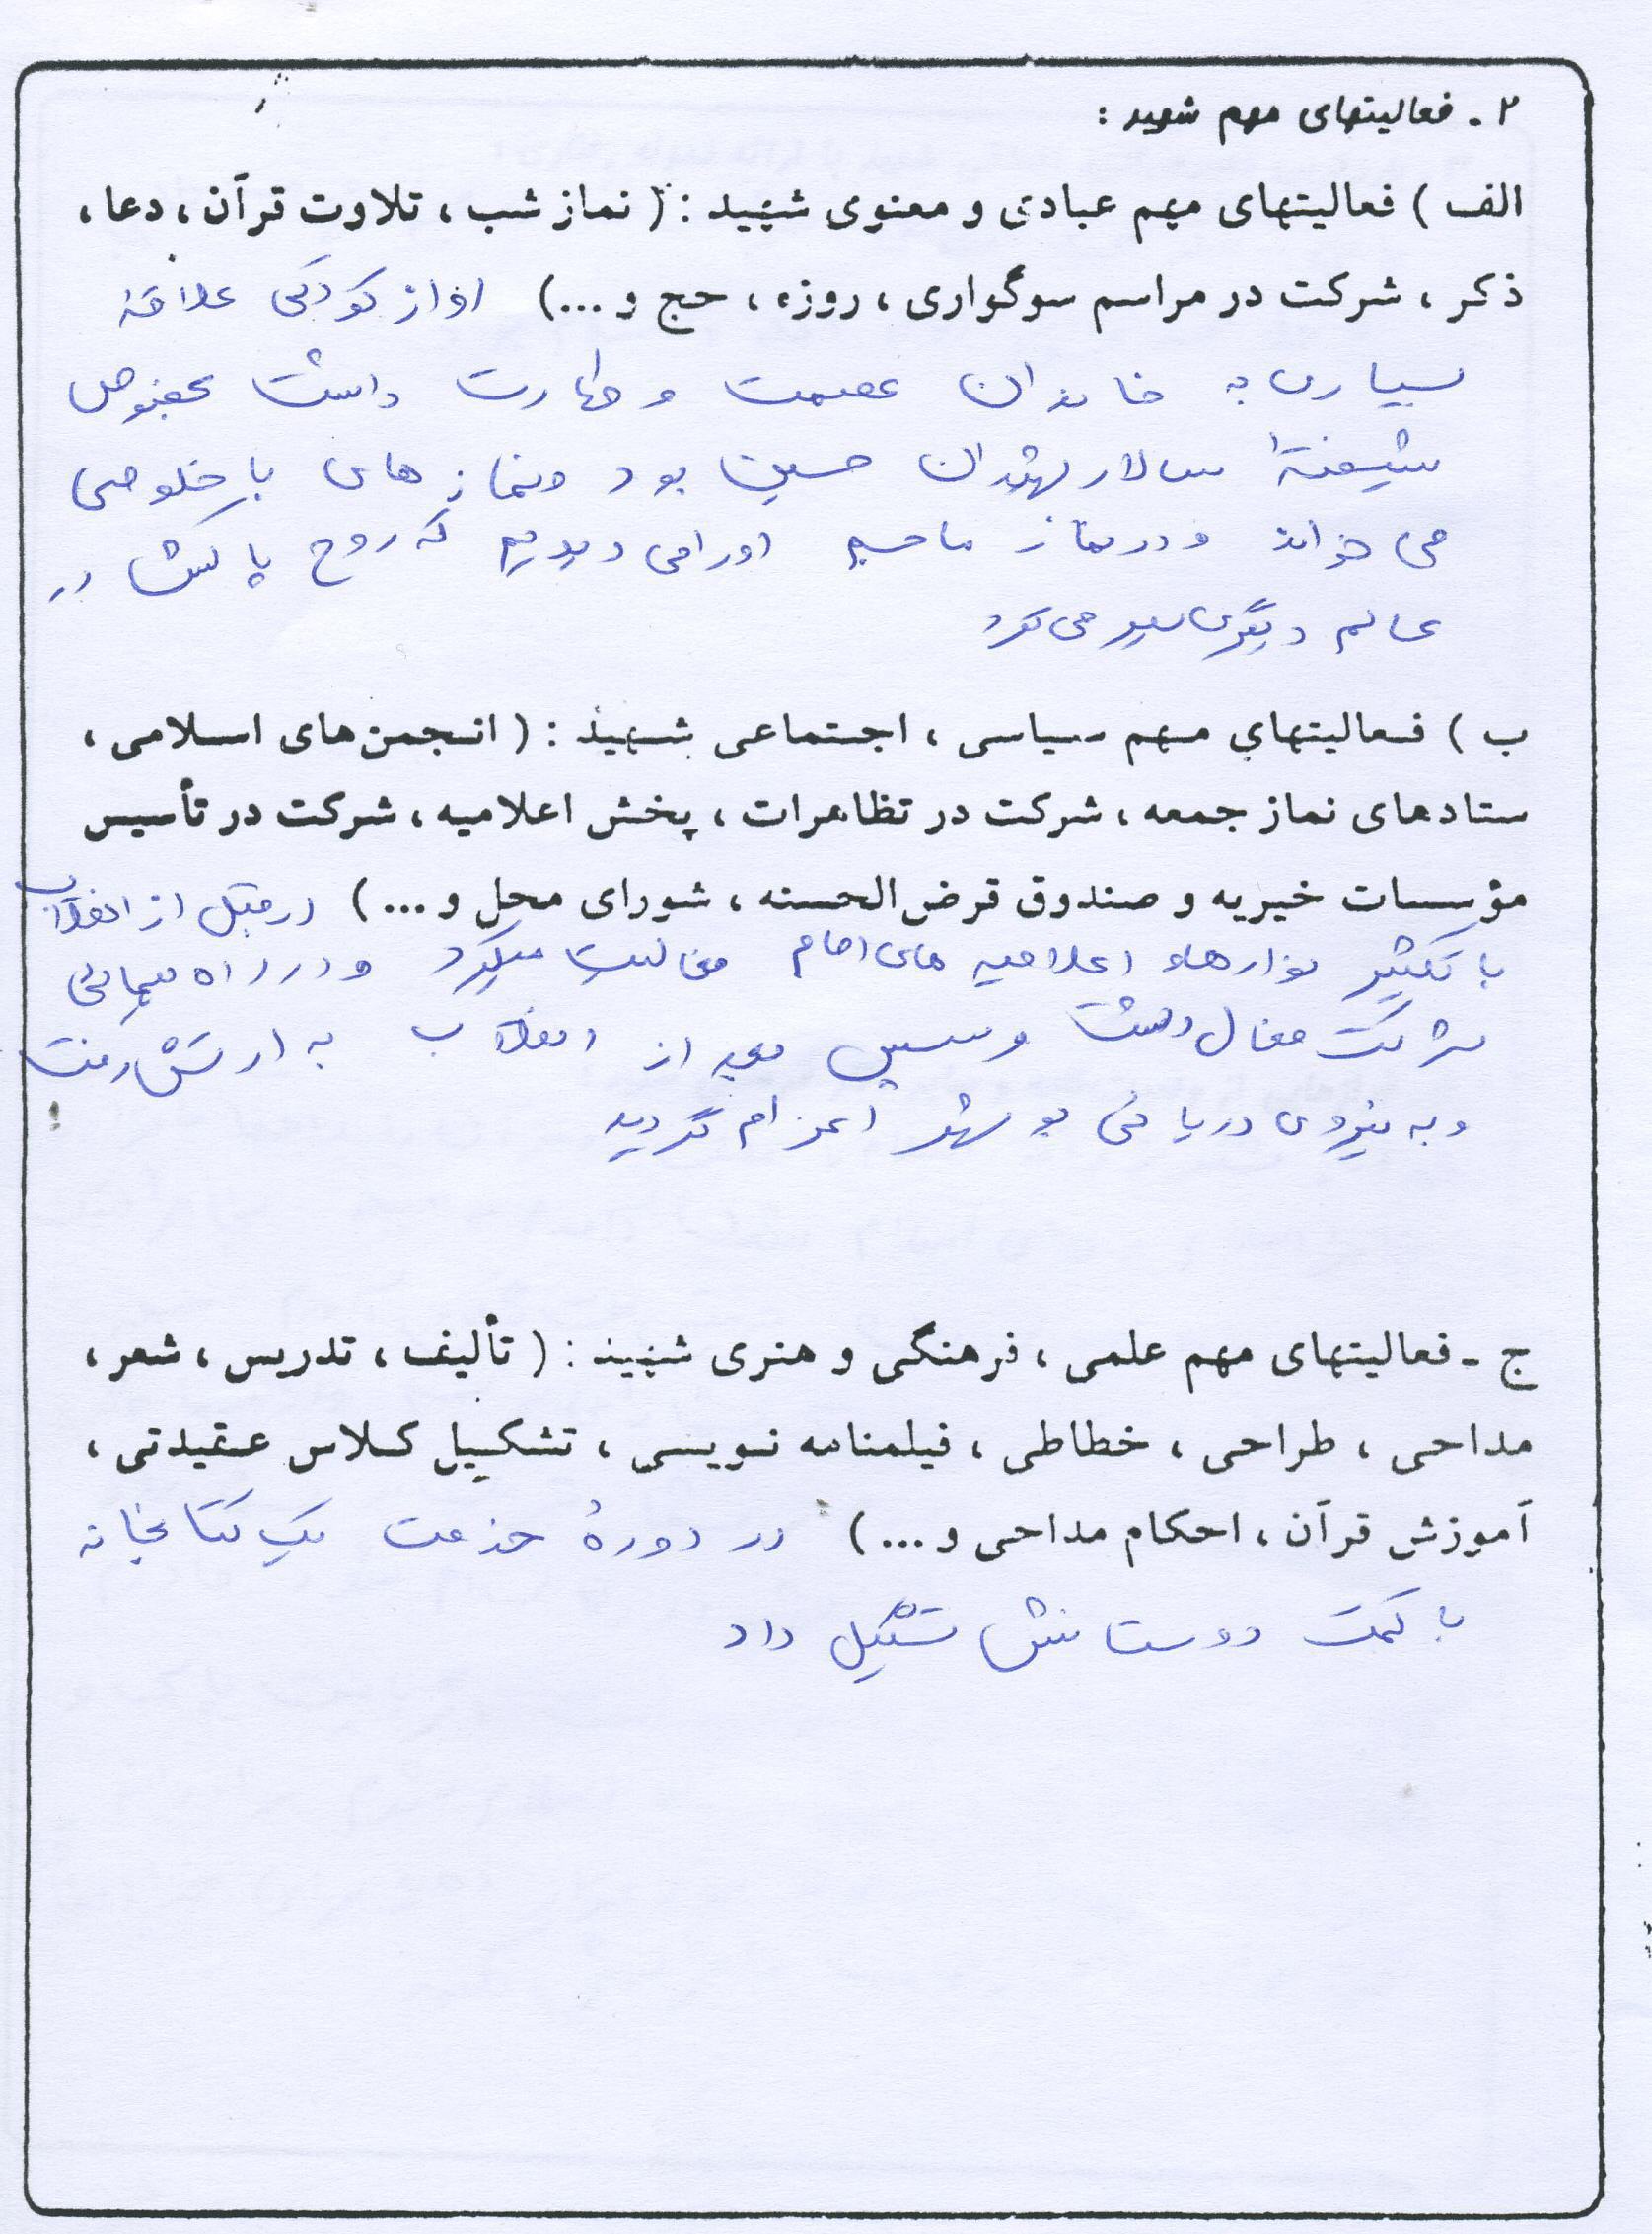 ۲ ـ فعالیتهای مهم شهید :
الف ) فعالیتهای مهم عبادی و معنوی شهید : ( نماز شب ، تلاوت قرآن ، دعا ،
ذکر ، شرکت در مراسم سوگواری ، روزه ، حج و ...) او از کودکی علاقهٔ
بسیاری به خاندان عصمت و طهارت داشت بخصوص
شیفتهٔ سالار شهیدان حسین بود و نماز های با خلوصی
می خواند و در نماز ما حسی او را می دیدیم که روح پاکش در
عالم دیگری سیر می کرد
ب ) فعالیتهای مهم سیاسی ، اجتماعی شهید : ( انجمن‌های اسلامی ،
ستادهای نماز جمعه ، شرکت در تظاهرات ، پخش اعلامیه ، شرکت در تأسیس
مؤسسات خیریه و صندوق قرض‌الحسنه ، شورای محل و ...) در قبل از انقلاب
با تکثیر نوارها و اعلامیه های امام فعالیت میکرد و در راه پیمائی
شرکت فعال داشت و سپس بعد از انقلاب به ارتش رفت
و به نیروی دریائی بوشهر اعزام گردید
ج ـ فعالیتهای مهم علمی ، فرهنگی و هنری شهید : ( تألیف ، تدریس ، شعر ،
مداحی ، طراحی ، خطاطی ، فیلمنامه نویسی ، تشکیل کلاس عقیدتی ،
آموزش قرآن ، احکام مداحی و ...) در دورهٔ خدمت یک کتابخانه
با کمک دوستانش تشکیل داد